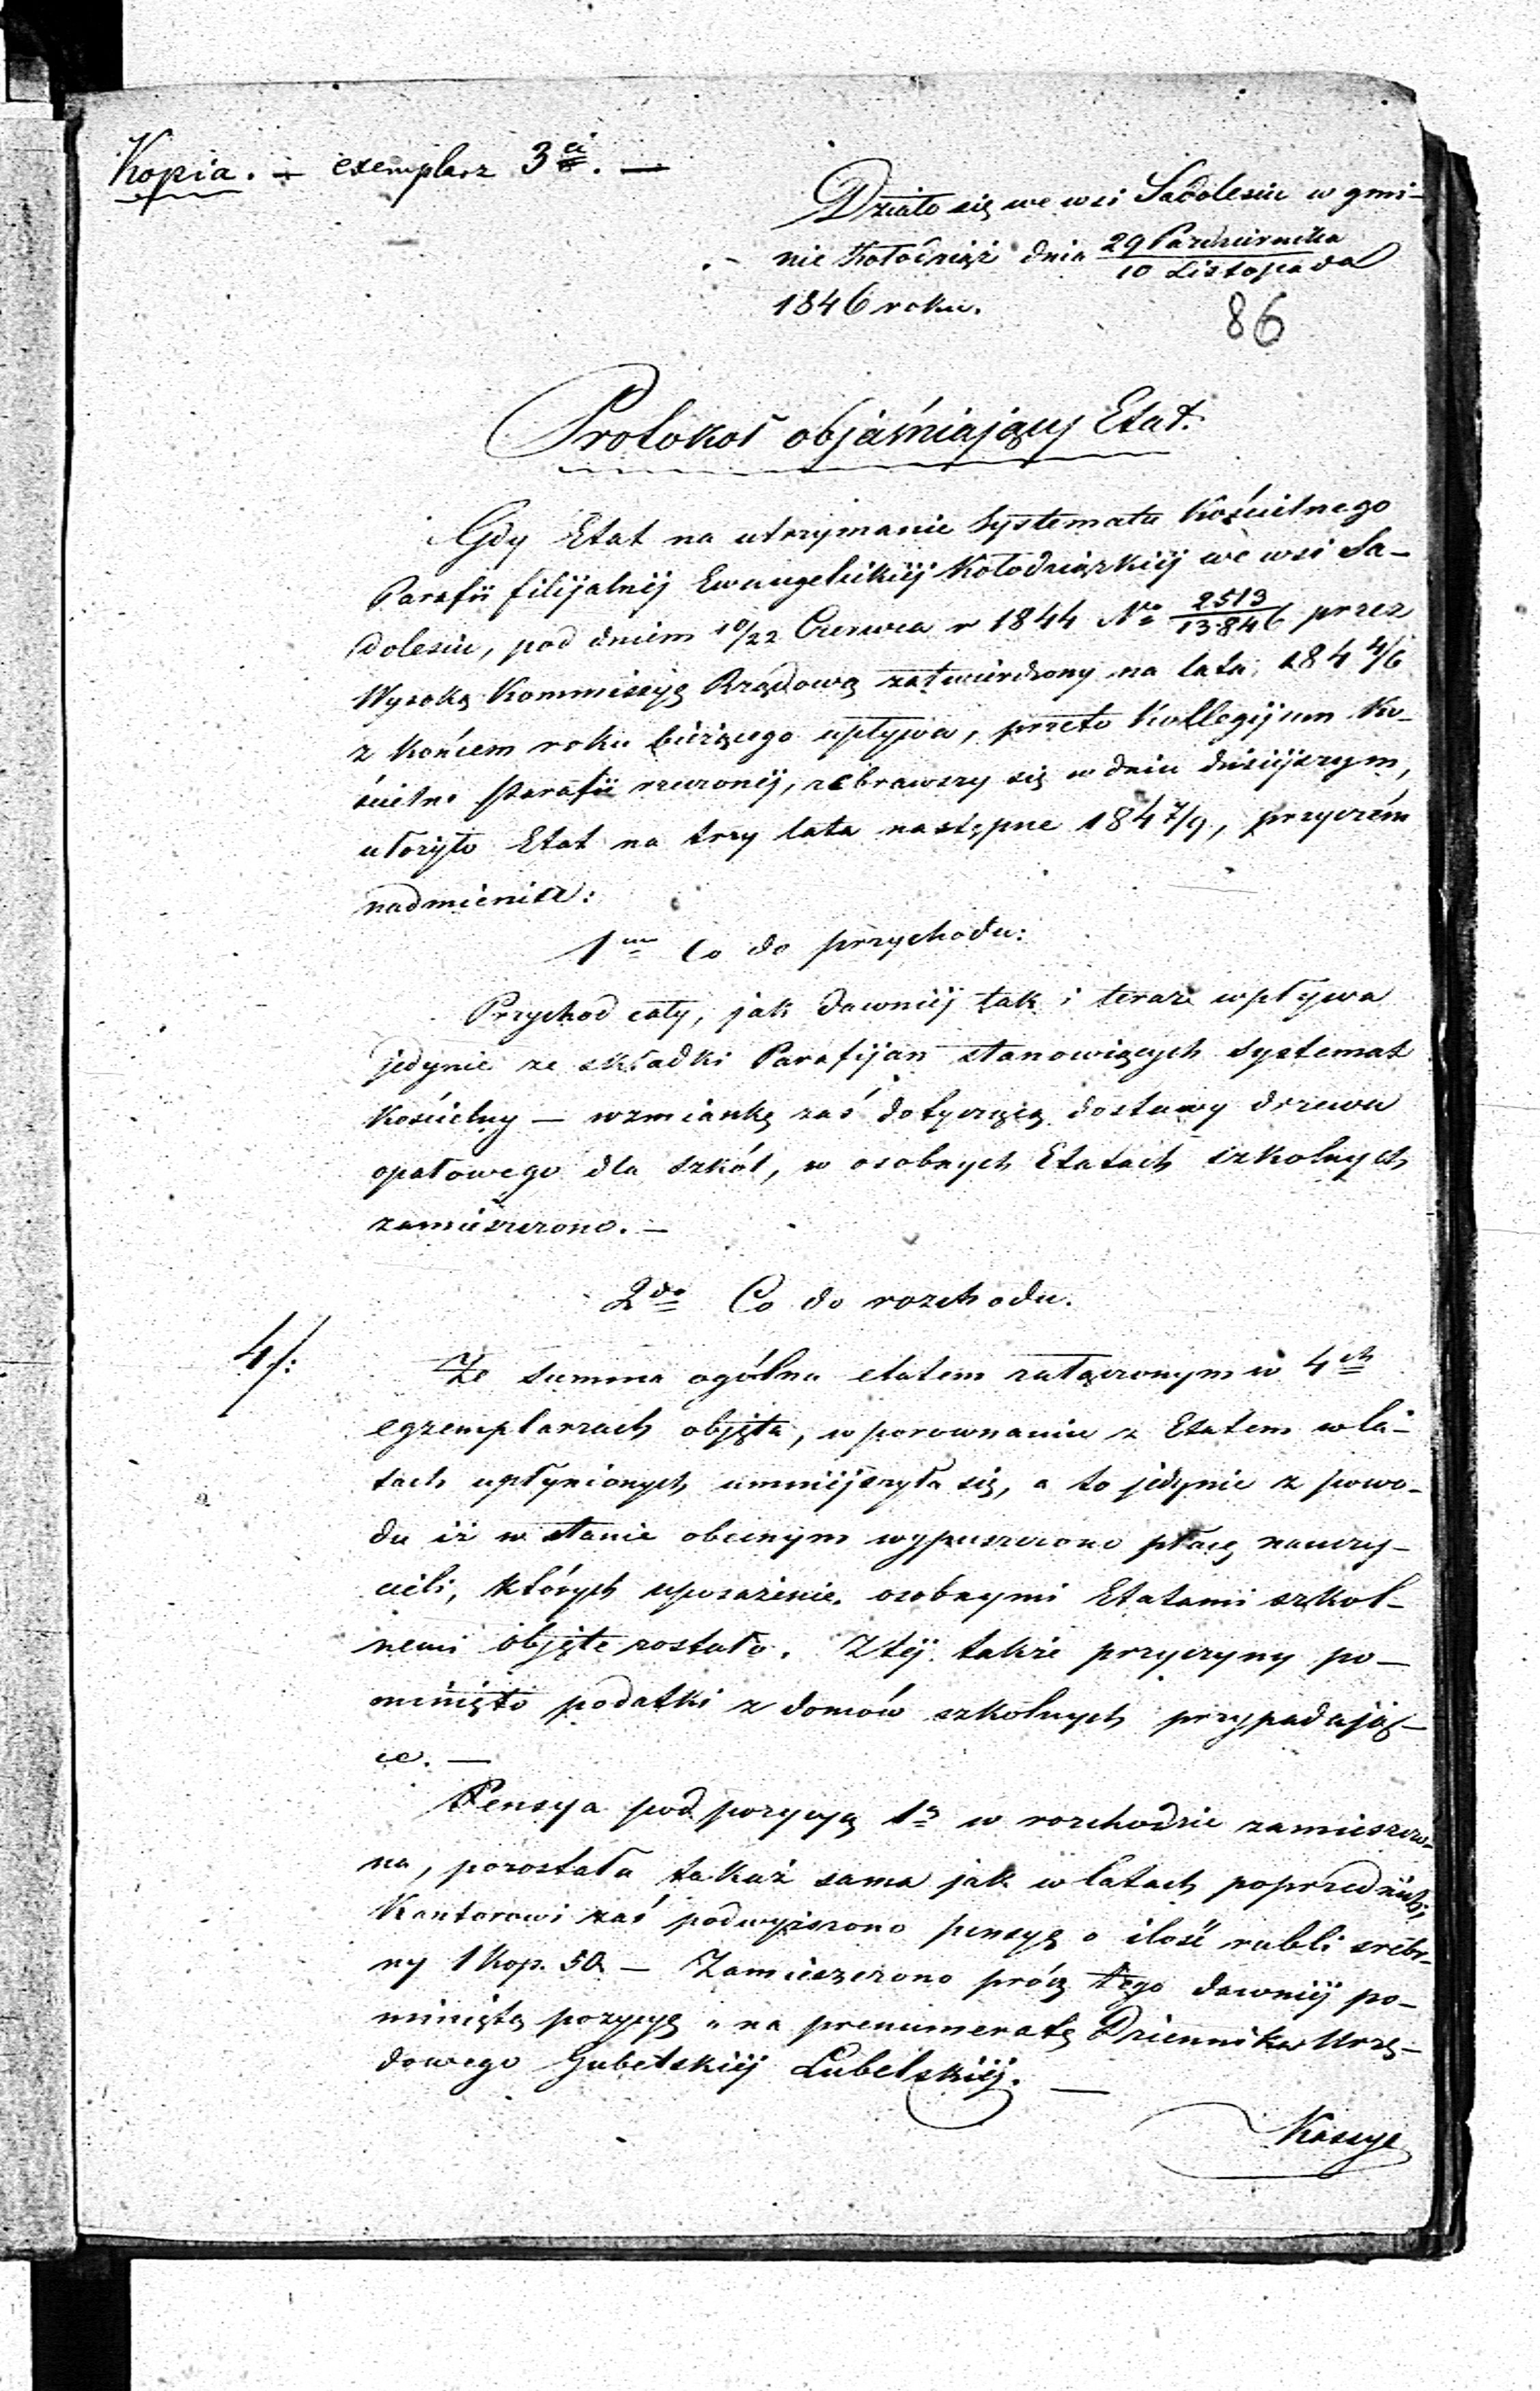 Kopia. — exemplarz 3ci. —
Działo się we wsi Sadolesiu w gmi-
nie Kołodziąż dnia 29 Pazdziernika / 10 Listopada
1846 roku.
86
Protokoł objaśniający Etat.
Gdy Etat na utrzymanie Systematu Kościelnego
Parafii filijalnéj Ewangelickiéj Kołodziąskiéj we wsi Sa-
dolesiu, pod dniem 10/22 Czerwca r 1844 No 2513/13846 przez
Wysoką Kommissyą Rządową zatwierdzony na lata 184 4/6
z końcem roku bieżącego upływa, przeto Kollegijum Ko-
ścielne Parafii rzeczonéj, zebrawszy się w dniu dzisiejszym,
ułożyło Etat na trzy lata następne 184 7/9, przyczém
nadmienia:
1mo Co do przychodu:
Przychod cały, jak dawniéj tak i teraz wpływa
jedynie ze składki Parafijan stanowiących systemat
Kościelny — wzmiankę zaś dotyczącą dostawy drzewa
opałowego dla szkół, w osobnych Etatach szkolnych
zamieszczono. —
2do Co do rozchodu.
4/:
Że summa ogólna etatem załączonym w 4ch
egzemplarzach objęta, w porownaniu z Etatem w la-
tach upłynionych umniéjszyła się, a to jedynie z powo-
du iż w stanie obecnym wypuszczono płacę nauczy-
cieli, których uposażenie osobnymi Etatami szkol-
nemi objęte zostało. Z téj także przyczyny po-
minięto podatki z domów szkolnych przypadają-
ce. —
Pensya pod pozycyą 1ą w rozchodzie zamieszczo-
na, pozostała takaż sama jak w latach poprzednich,
Kantorowi zaś podwyższono pensyę o ilość rubli srebr-
ny 1 Kop. 50 — Zamieszczono prócz tego dawniéj po-
miniętą pozycyę „na prenumeratę Dziennika Urzę-
dowego Gubelskiéj Lubelskiéj. —
Kassye